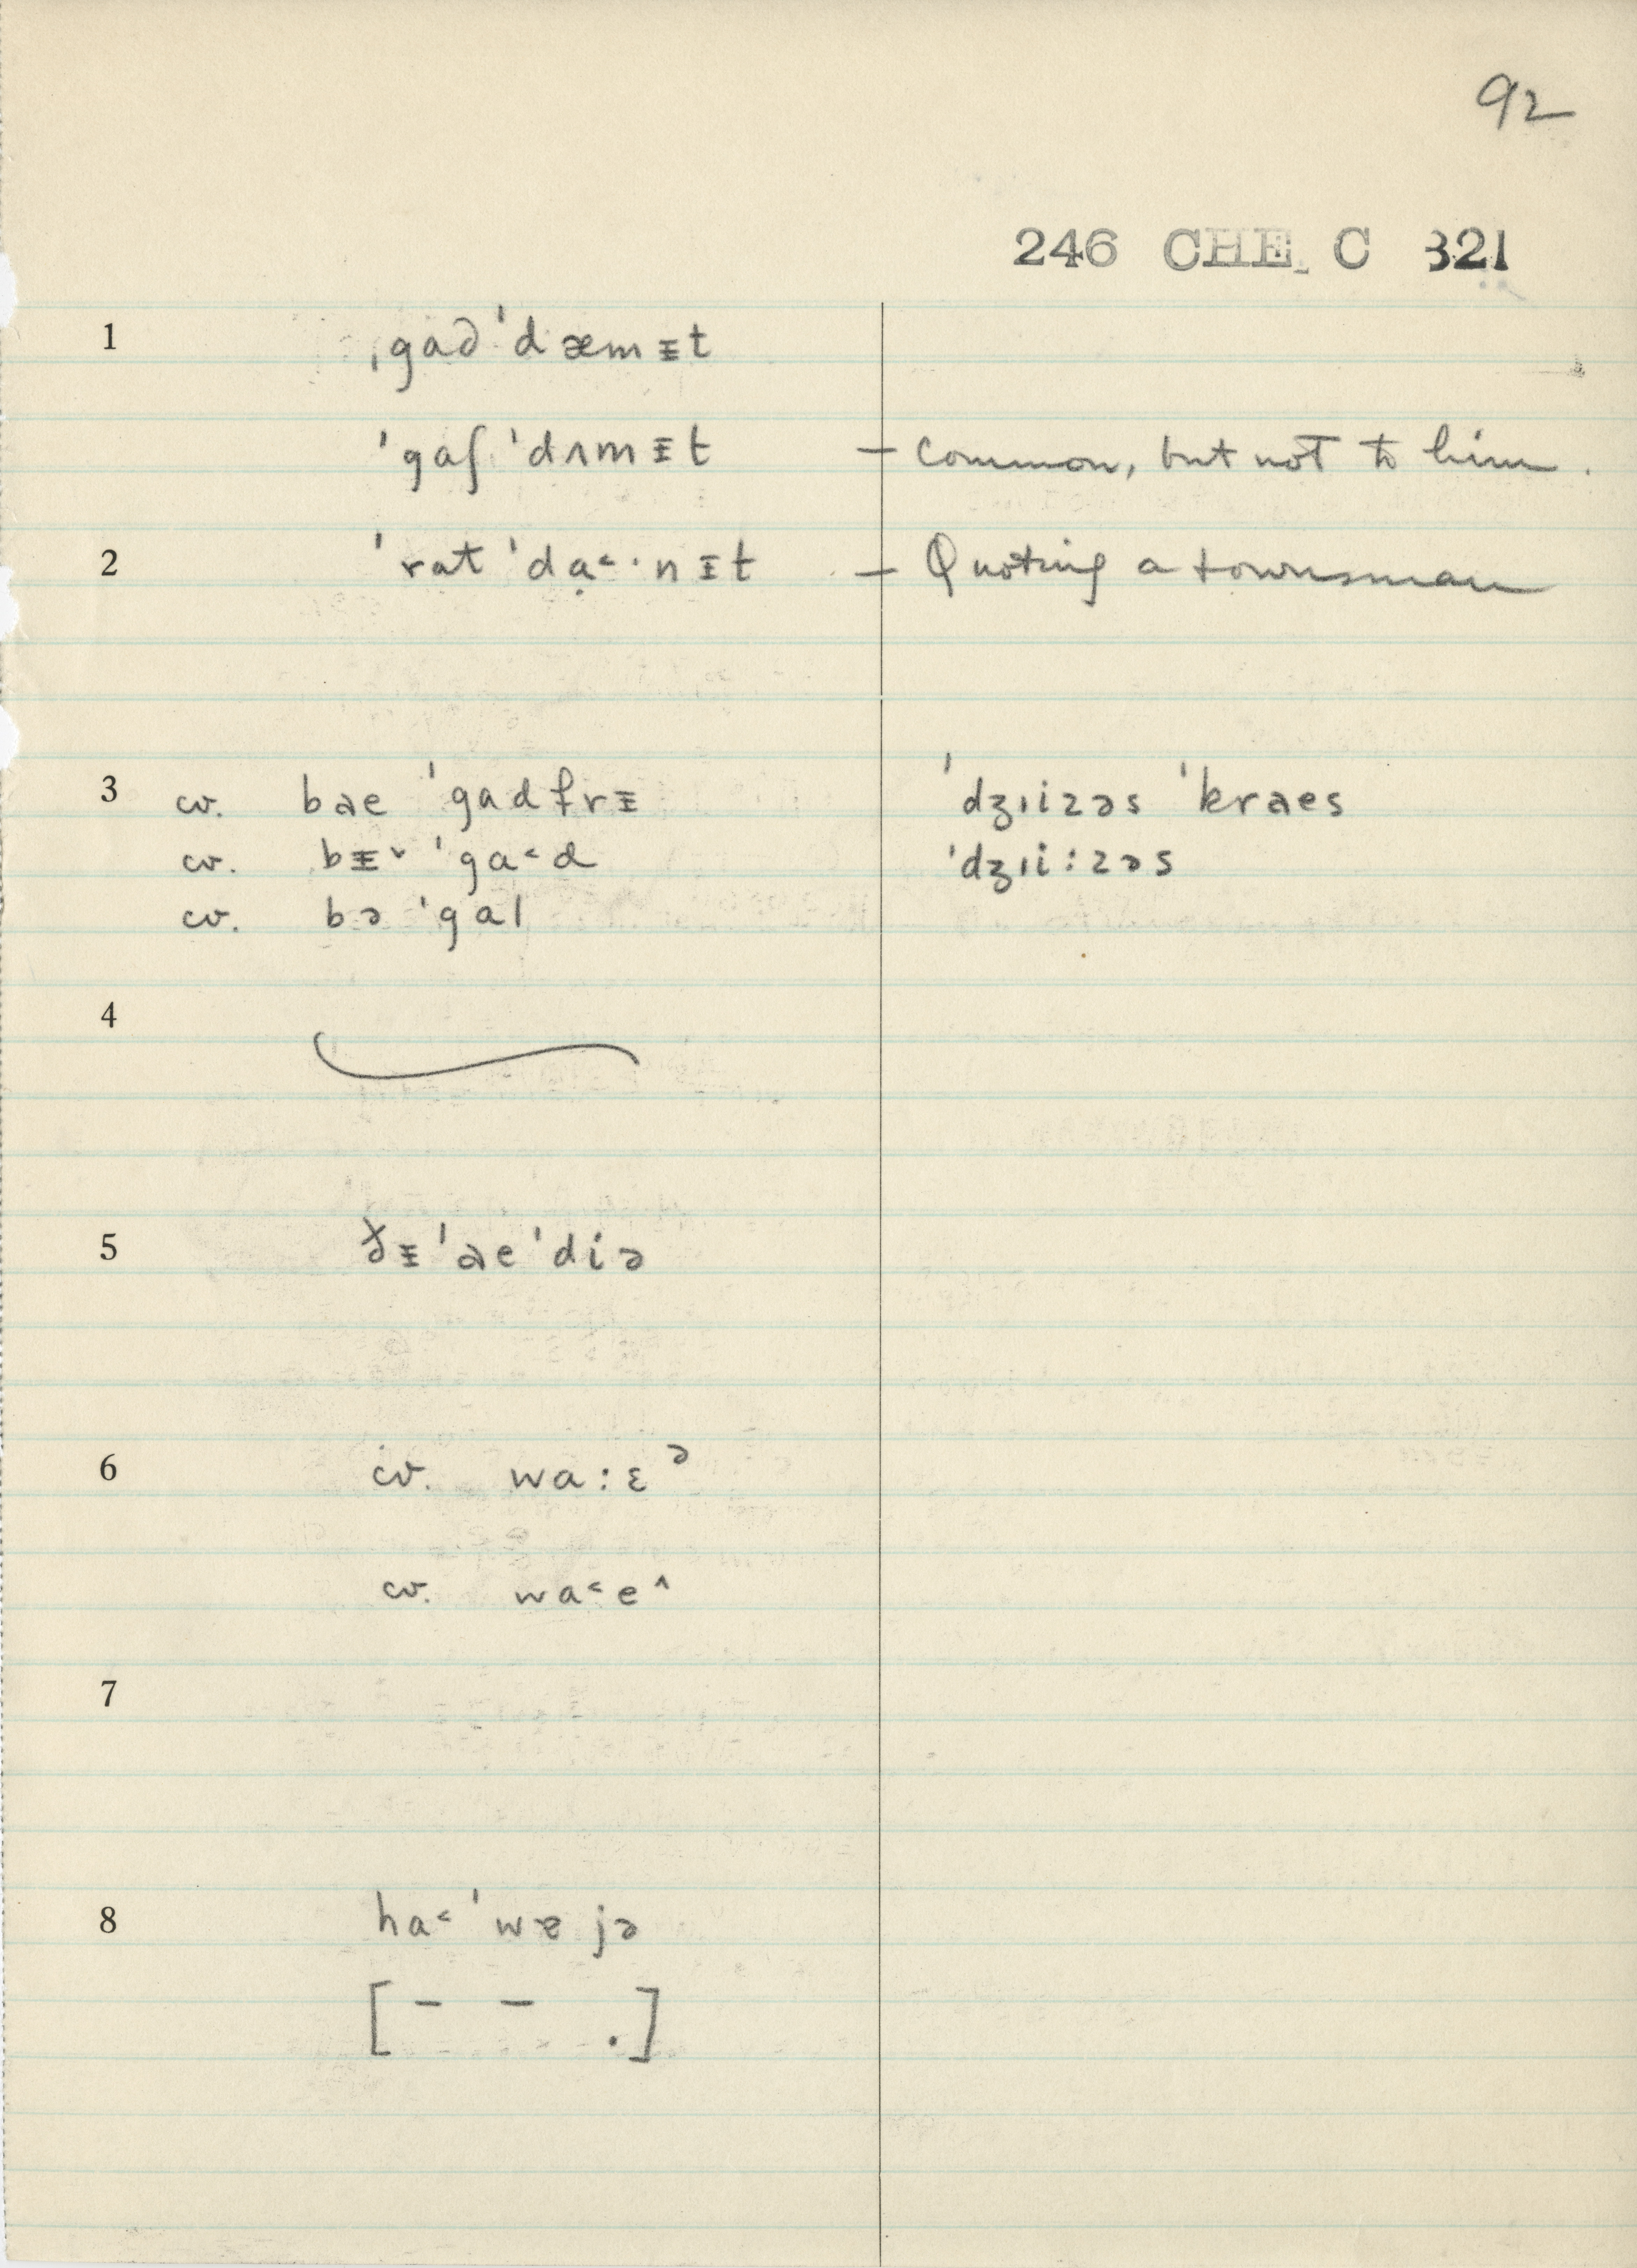 92
246 CHE C 321
1 ˌgað ˈdæmᵻt
ˈgaʃ ˈdʌmᵻt — Common, but not to him.
2 ˈrat ˈdạ˂·nᵻt — Quoting a townsman
3 cv. bəe ˈgadfrᵻ ˈdʒɪizəs ˈkraes
cv. bᵻ˅ ˈga˂d ˈdʒɪi:zəs
cv. bə ˈgal
4
5 ðᵻˈaeˈdiə
6 cv. wa:ɛᵊ
cv. wa˂e^
7
8 ha˂ˈwɐjə
[– – .]